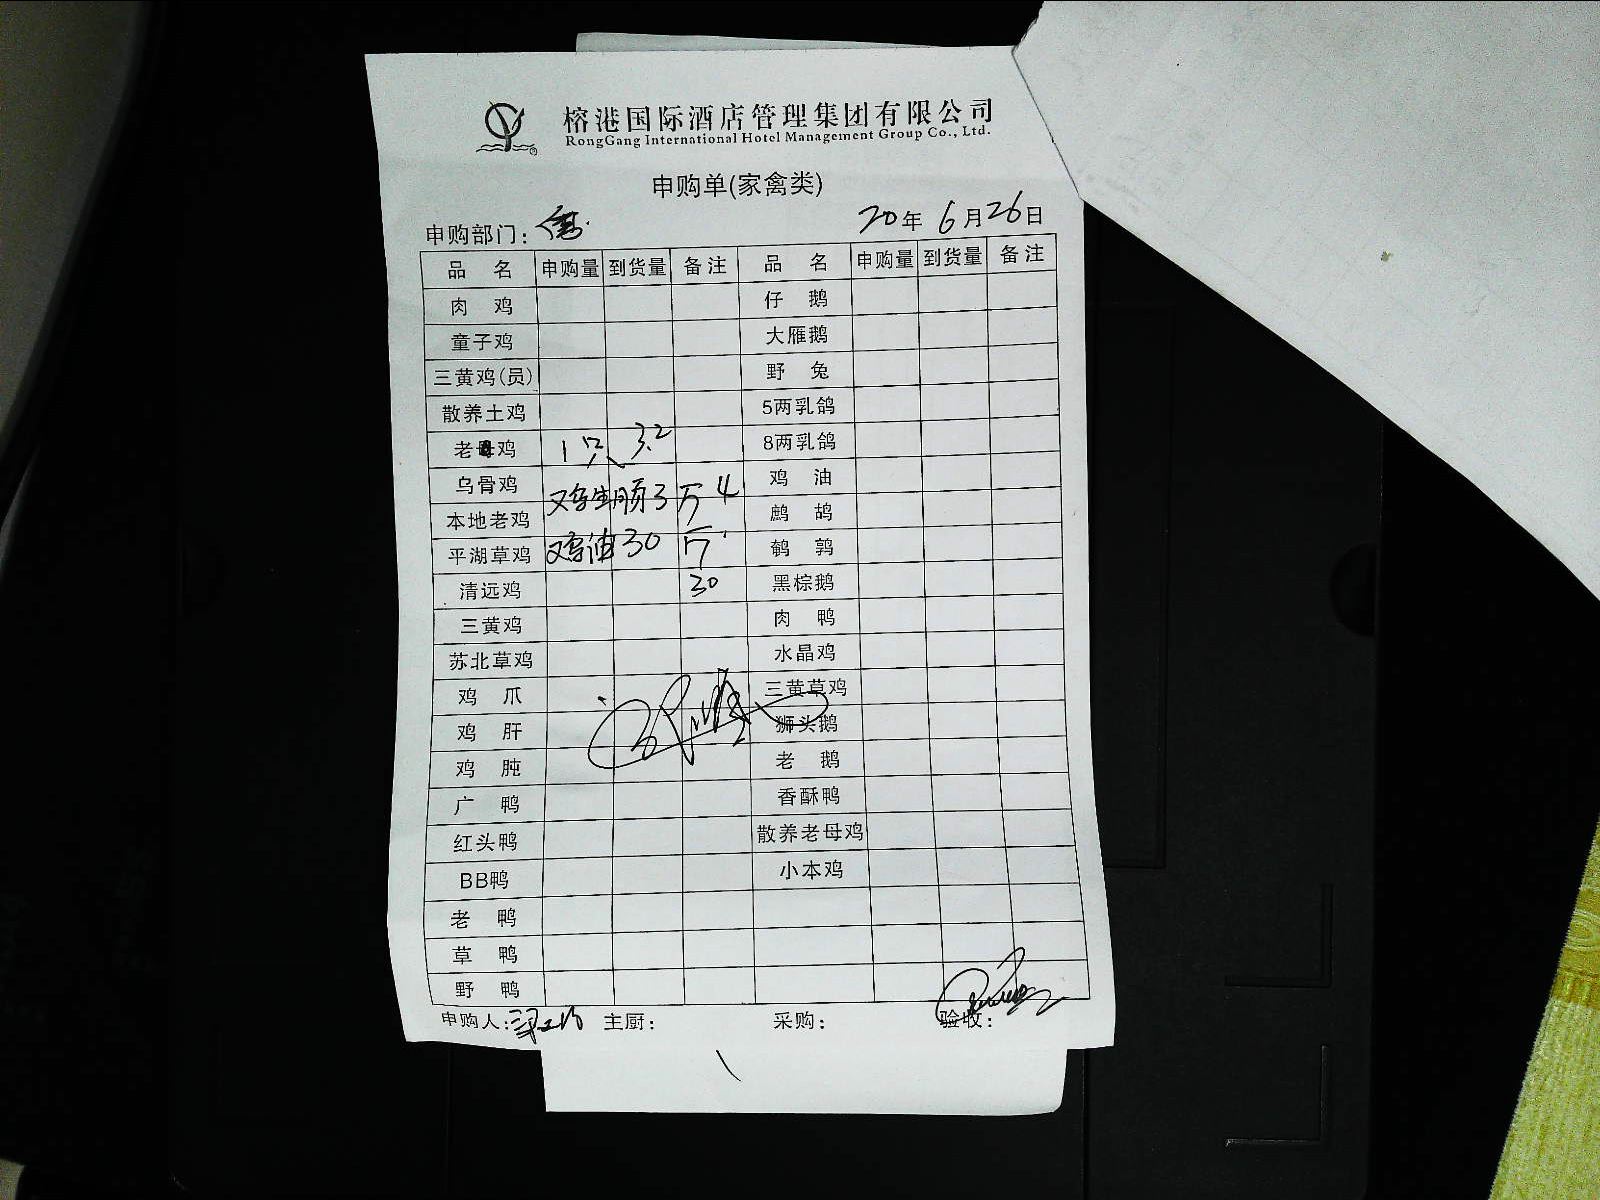 榕港国际酒店管理集团有限公司
RongGang International Hotel Management Group Co., Ltd.
申购单(家禽类)
申购部门: 20年 6月26日
品 名 申购量 到货量 备注 品 名 申购量 到货量 备注
肉 鸡 仔 鹅
童子鸡 大雁鹅
三黄鸡(员) 野 兔
散养土鸡 5两乳鸽
老母鸡 1只 3.2 8两乳鸽
乌骨鸡 鸡 油
鸡生肠3斤 4
本地老鸡 鹧 鸪
平湖草鸡 鸡油30斤 鹌 鹑
清远鸡 30 黑棕鹅
三黄鸡 肉 鸭
苏北草鸡 水晶鸡
鸡 爪 三黄草鸡
鸡 肝 狮头鹅
鸡 肫 老 鹅
广 鸭 香酥鸭
红头鸭 散养老母鸡
BB鸭 小本鸡
老 鸭
草 鸭
野 鸭
申购人: 主厨: 采购: 验收: